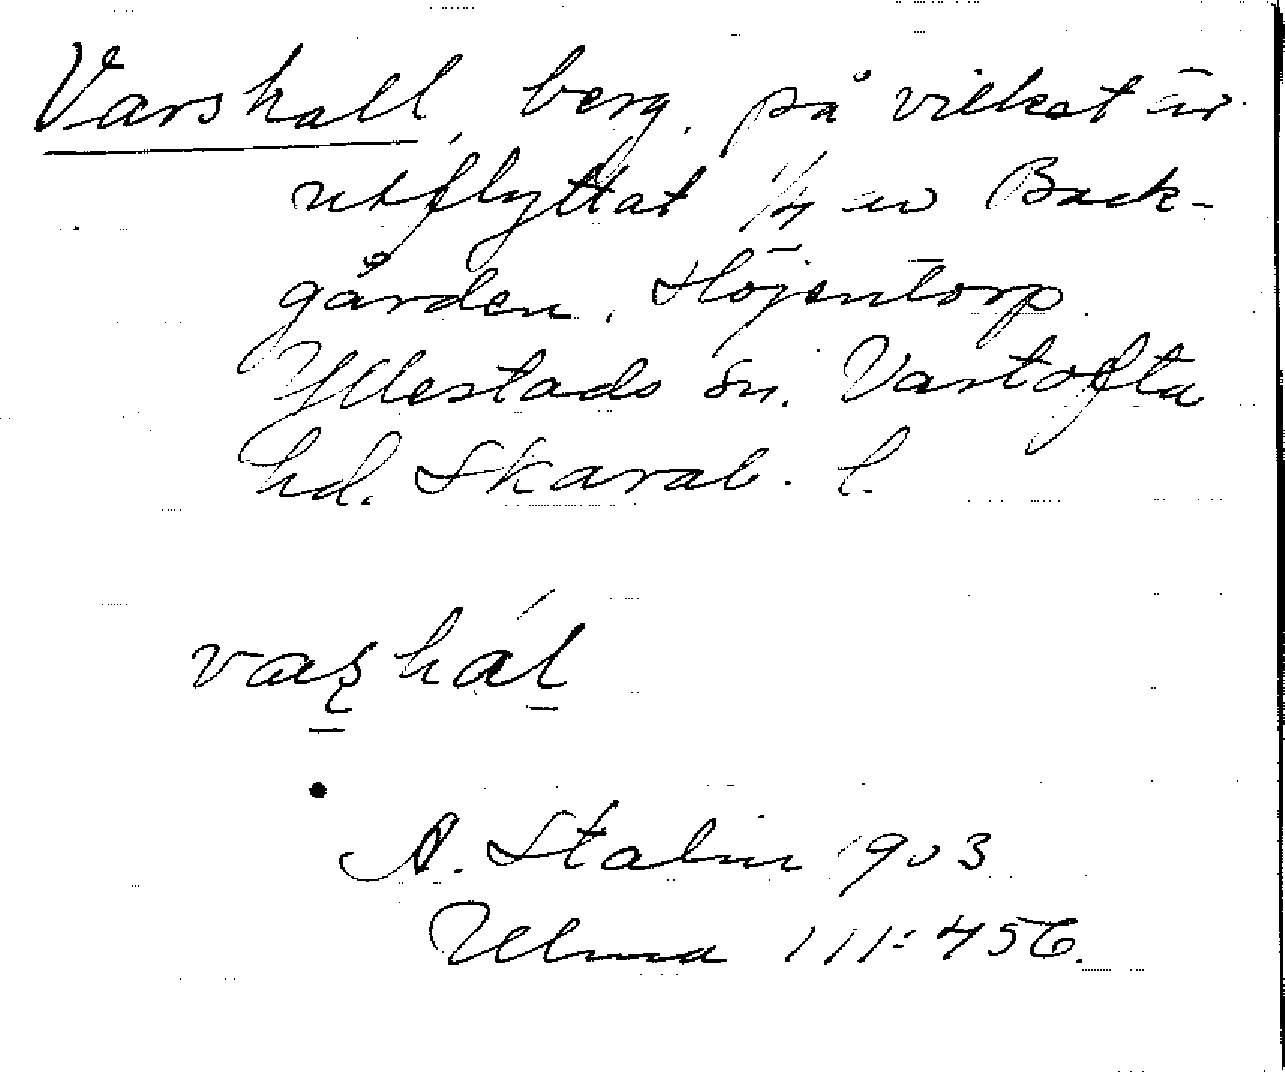 Varshall, berg, på vilket är
utflyttat 1/4 av Back-
gården, Höjentorp
Yllestads sn. Vartofta
hd. Skarab. l.
vaʂhál
A. Stalin 1903
Ulma 111:456.